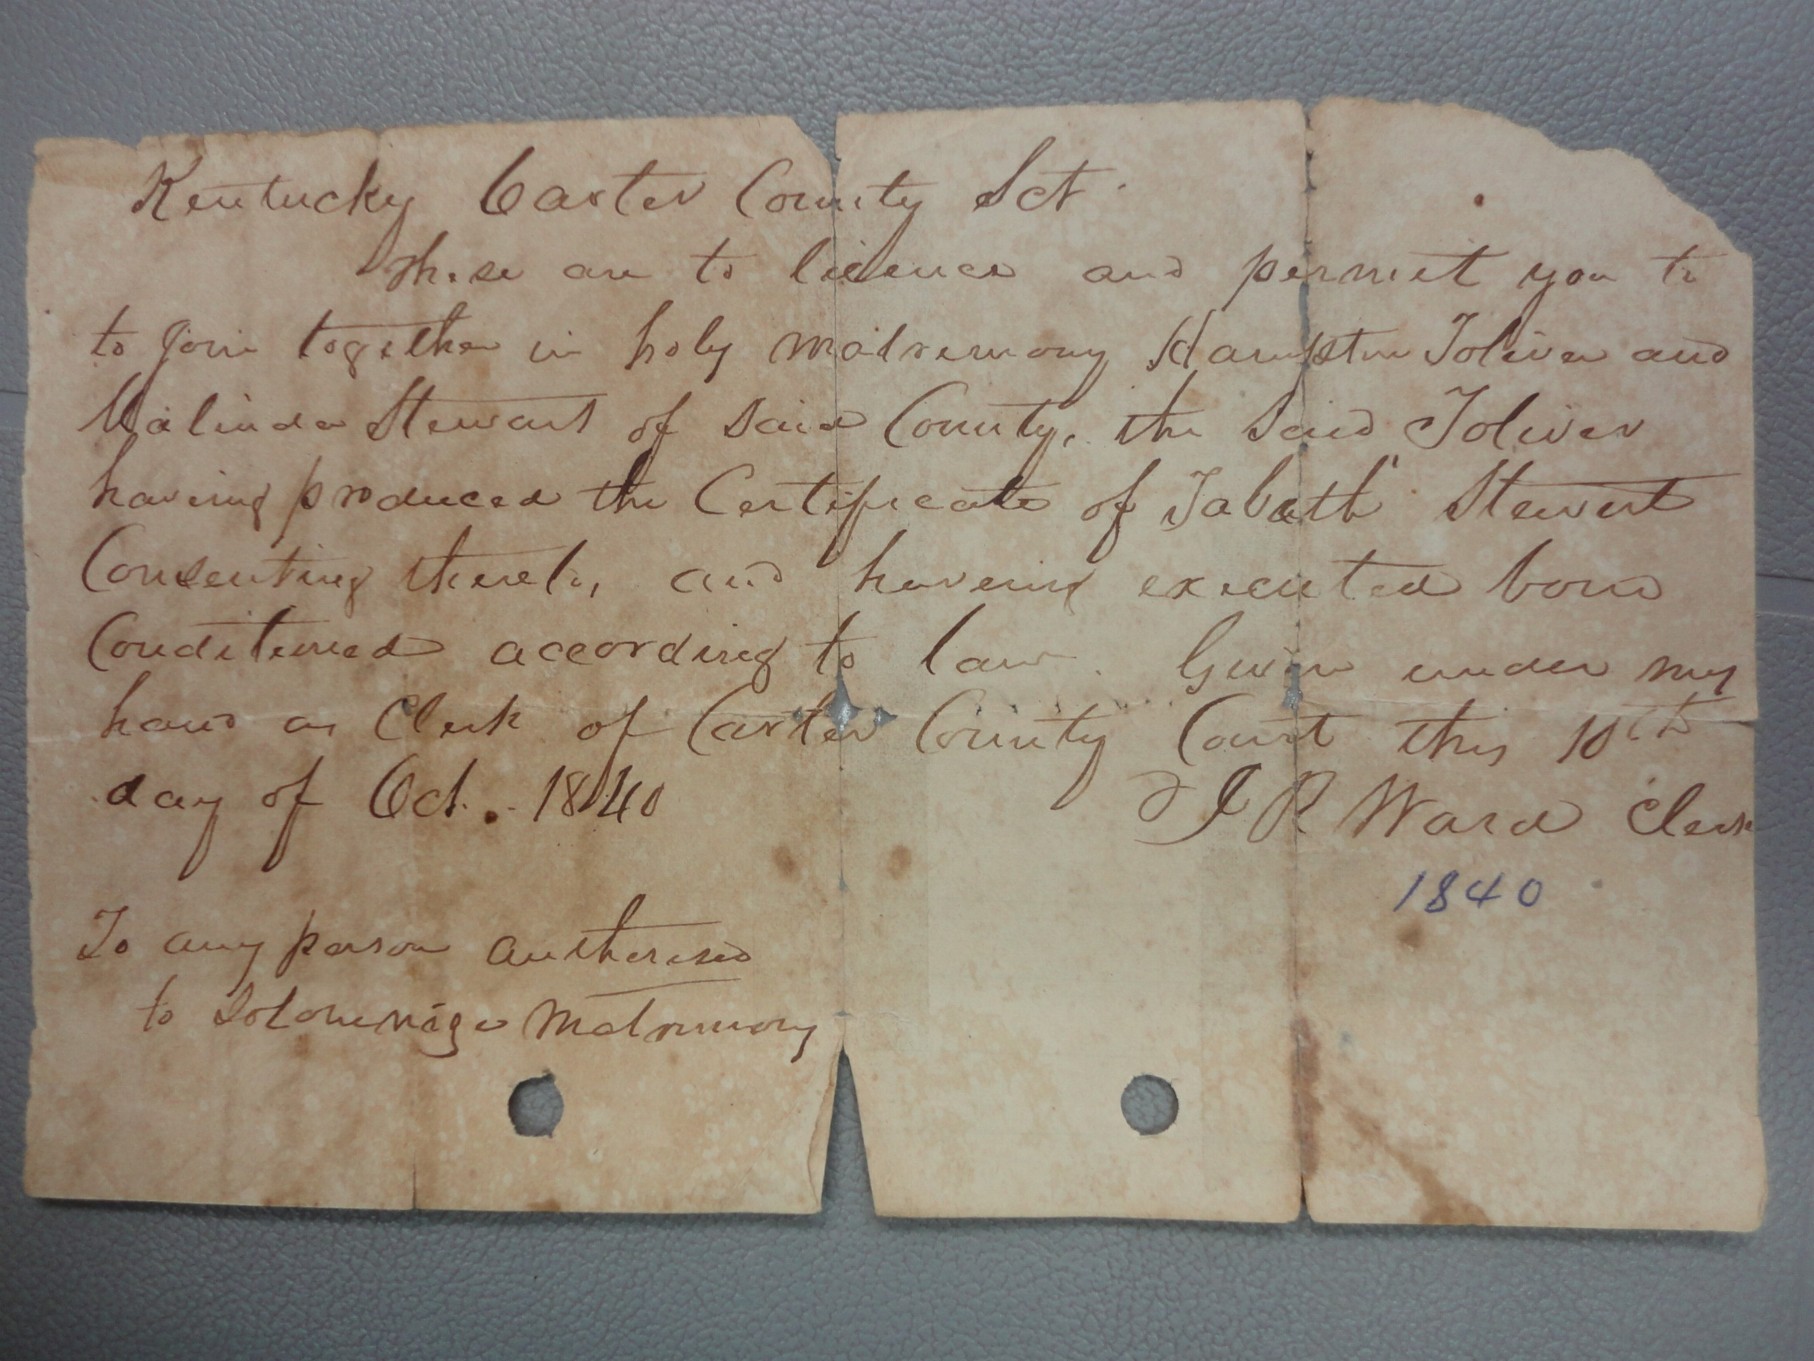 Kentucky Carter County Sct.
These are to licence and permit you to
to join together in holy matremony Hampton Toliver and
Malinda Stewart of said County, the said Toliver
having produced the Certificate of Tabath Stewart
Consenting thereto, and having executed bond
Conditioned according to law. Given under my
hand as Clerk of Carter County Court this 10th
day of Oct. 1840
J R Ward Clerk
1840
To any person authorised
to solemnize Matrimony